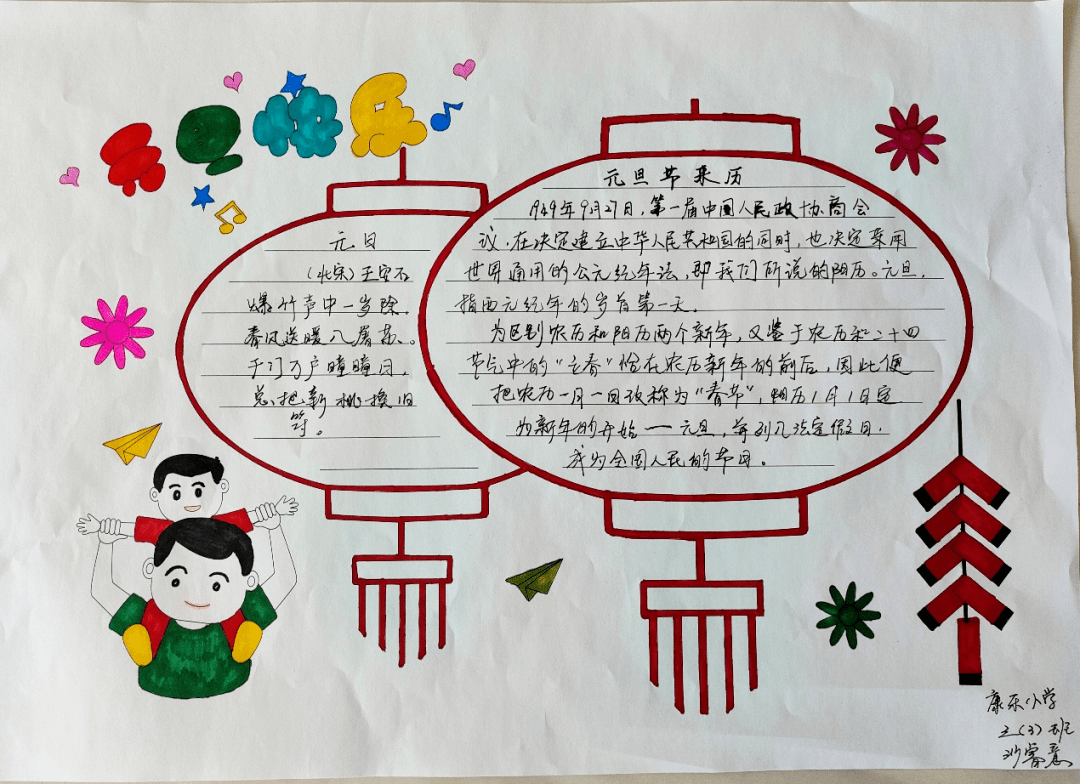 元旦快乐
元旦节来历
1949年9月27日，第一届中国人民政协商会
议，在决定建立中华人民共和国的同时，也决定采用
世界通用的公元纪年法，即我们所说的阳历。元旦，
指西元纪年的岁首第一天。
为区别农历和阳历两个新年，又鉴于农历和二十四
节气中的“立春”恰在农历新年的前后，因此便
把农历一月一日改称为“春节”，阳历1月1日定
为新年的开始一元旦，并列入法定假日.
成为全国人民的节日。
元日
（北宋）王安石
爆竹声中一岁除，
春风送暖入屠苏。
千门万户瞳瞳日，
总把新桃换旧
符。
康乐小学
三（3）班
沙睿